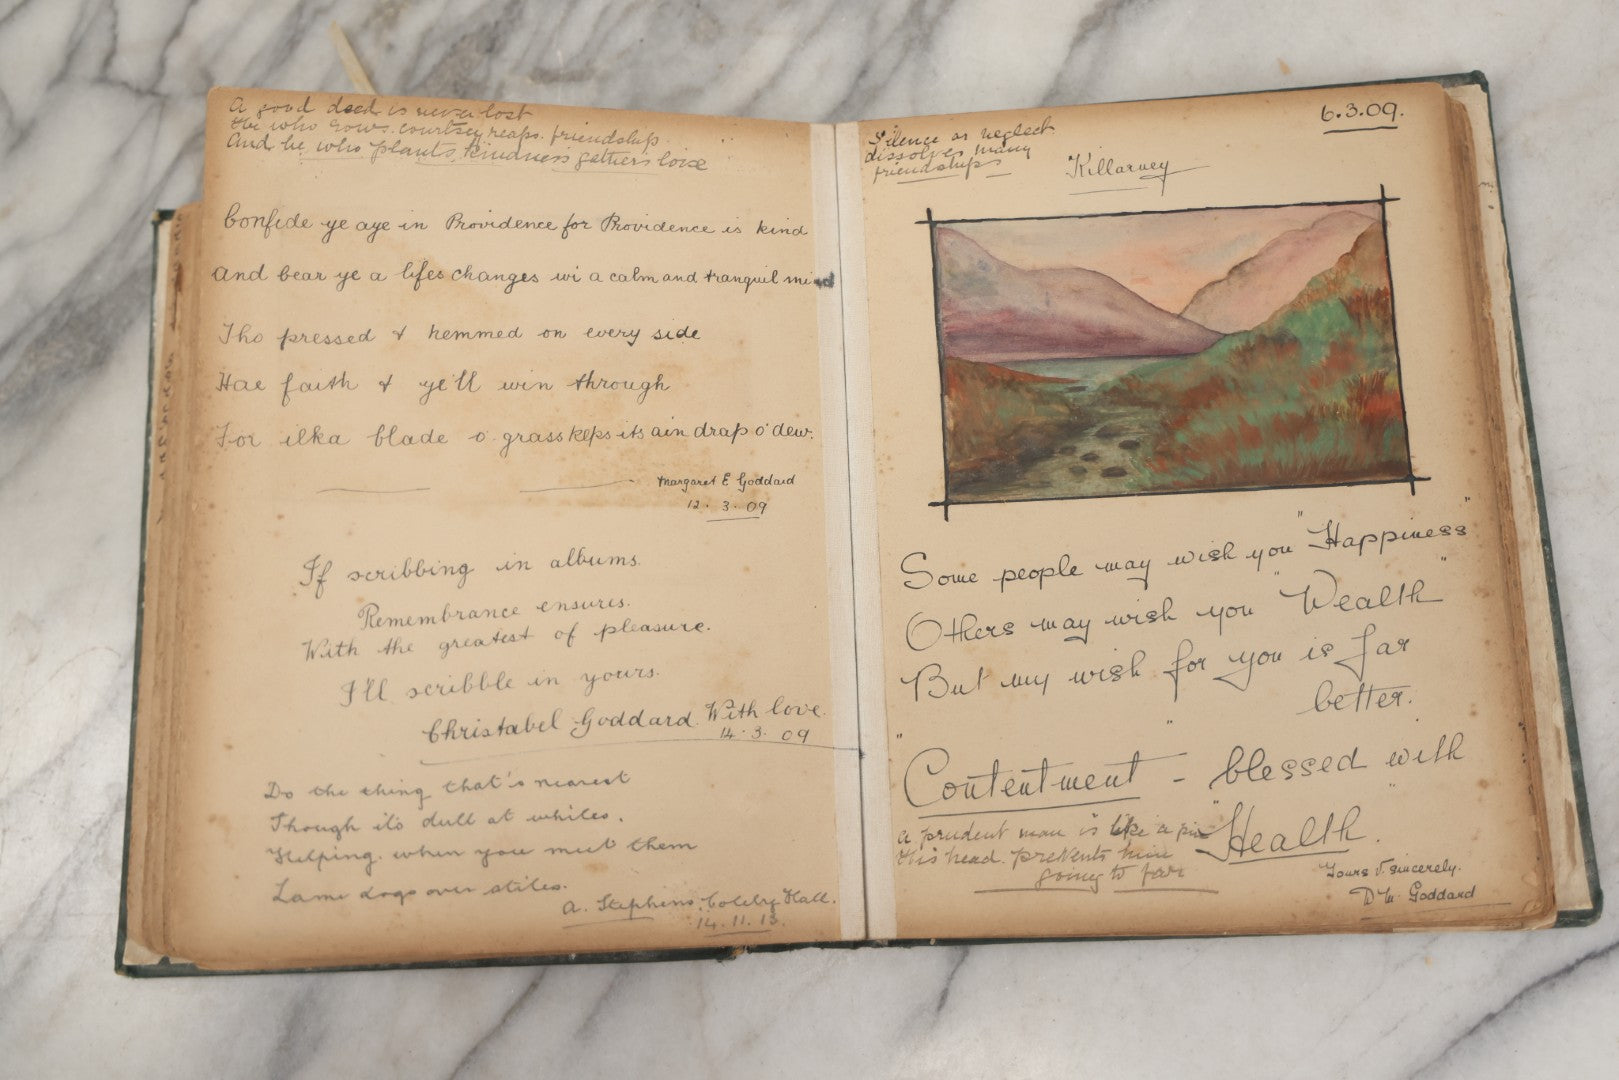 A good deed is never lost
He who sows courtesy reaps friendship
And he who plants kindness gathers love
Confide ye aye in Providence for Providence is kind
And bear ye a lifes changes wi a calm and tranquil mind
Tho pressed & hemmed on every side
Hae faith & ye'll win through
For ilka blade o' grass keps its ain drap o' dew.
Margaret E Goddard
12. 3. 09
If scribbing in albums.
Remembrance ensures.
With the greatest of pleasure.
I'll scribble in yours.
Christabel Goddard. With love.
14. 3. 09
Do the thing that's nearest
Though it's dull at whiles,
Helping when you meet them
Lame dogs over stiles.
A. Stephens. Coleby Hall.
14. 11. 13.
6.3.09.
Silence or neglect
dissolves many
friendships
Killarney
Some people may wish you "Happiness"
Others may wish you "Wealth"
But my wish for you is far
better.
"Contentment" - blessed with
"Health".
A prudent man is like a pin
His head prevents him
going to far
Yours V. Sincerely.
D. M. Goddard